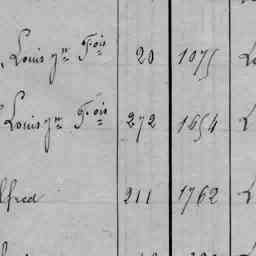 , Louis jn Fois 20 1075 L
Louis jn Fois 272 1654 L
lfred 211 1762 L